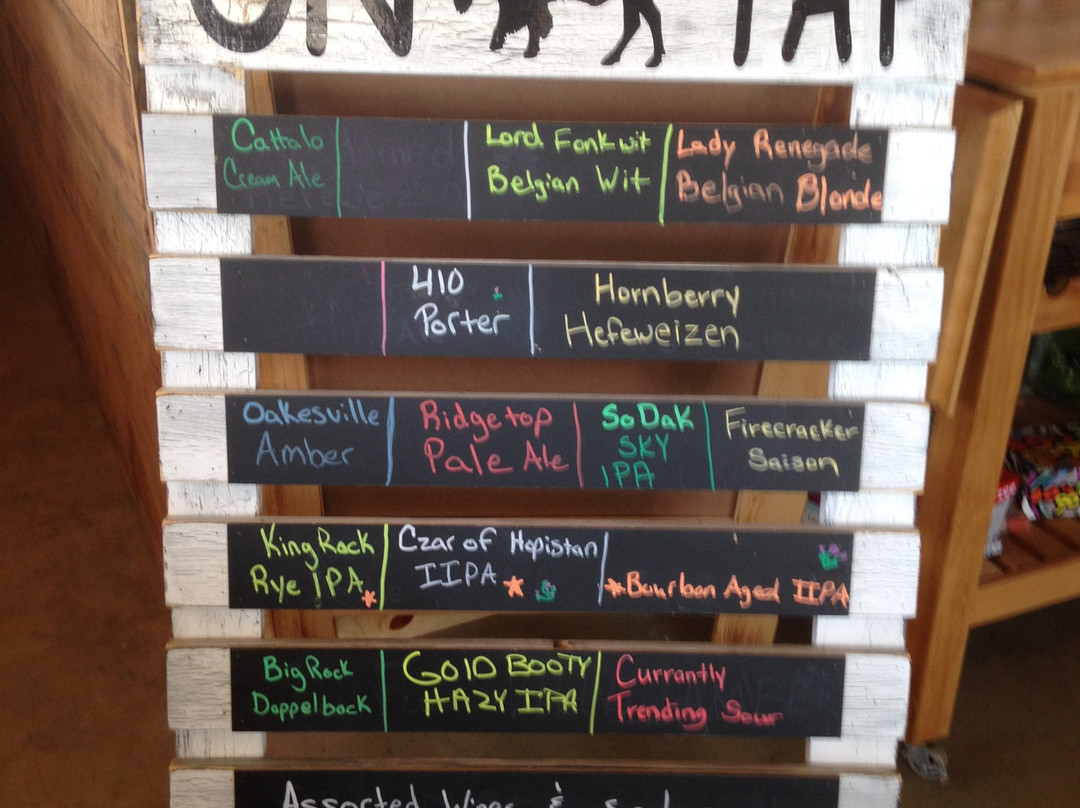 ON TAP
Cattalo
Cream Ale
Lord Fonkwit
Belgian Wit
Lady Renegade
Belgian Blonde
410
Porter
Hornberry
Hefeweizen
Oakesville
Amber
Ridgetop
Pale Ale
SoDak
SKY
IPA
Firecracker
Saison
King Rock
Rye IPA*
Czar of Hopistan
IIPA *
*Bourbon Aged IIPA
Big Rock
Doppelbock
GOLD BOOTY
HAZY IPA
Currantly
Trending Sour
Assorted Wines &